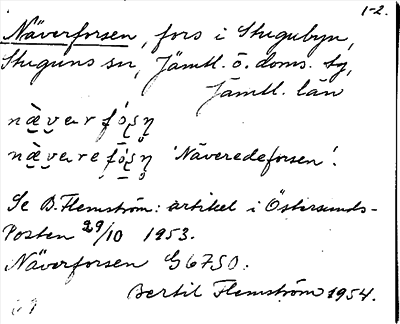 1-2.
Näverforsen, fors i Stugubyn,
Stuguns sn, Jämtl. ö. doms. tg,
Jämtl. län
nä̀varfó̱ʂn̥
nä̀varefó̱ʂn̥ 'Näveredeforsen'.
Se B. Flemström: artikel i Östersunds-
Posten 29/10 1953.
Näverforsen G6750:
Bertil Flemström 1954.